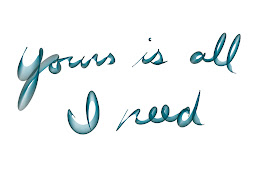 yours is all
I need